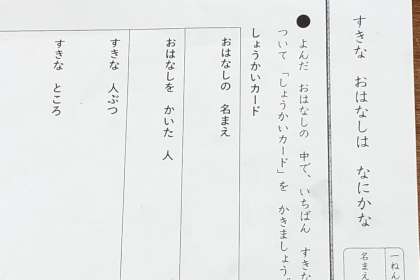 すきな おはなしは なにかな
一ねん
名まえ
●よんだ おはなしの 中で、いちばん すきな
ついて 「しょうかいカード」を かきましょう。
しょうかいカード
おはなしの 名まえ
おはなしを かいた 人
すきな 人ぶつ
すきな ところ